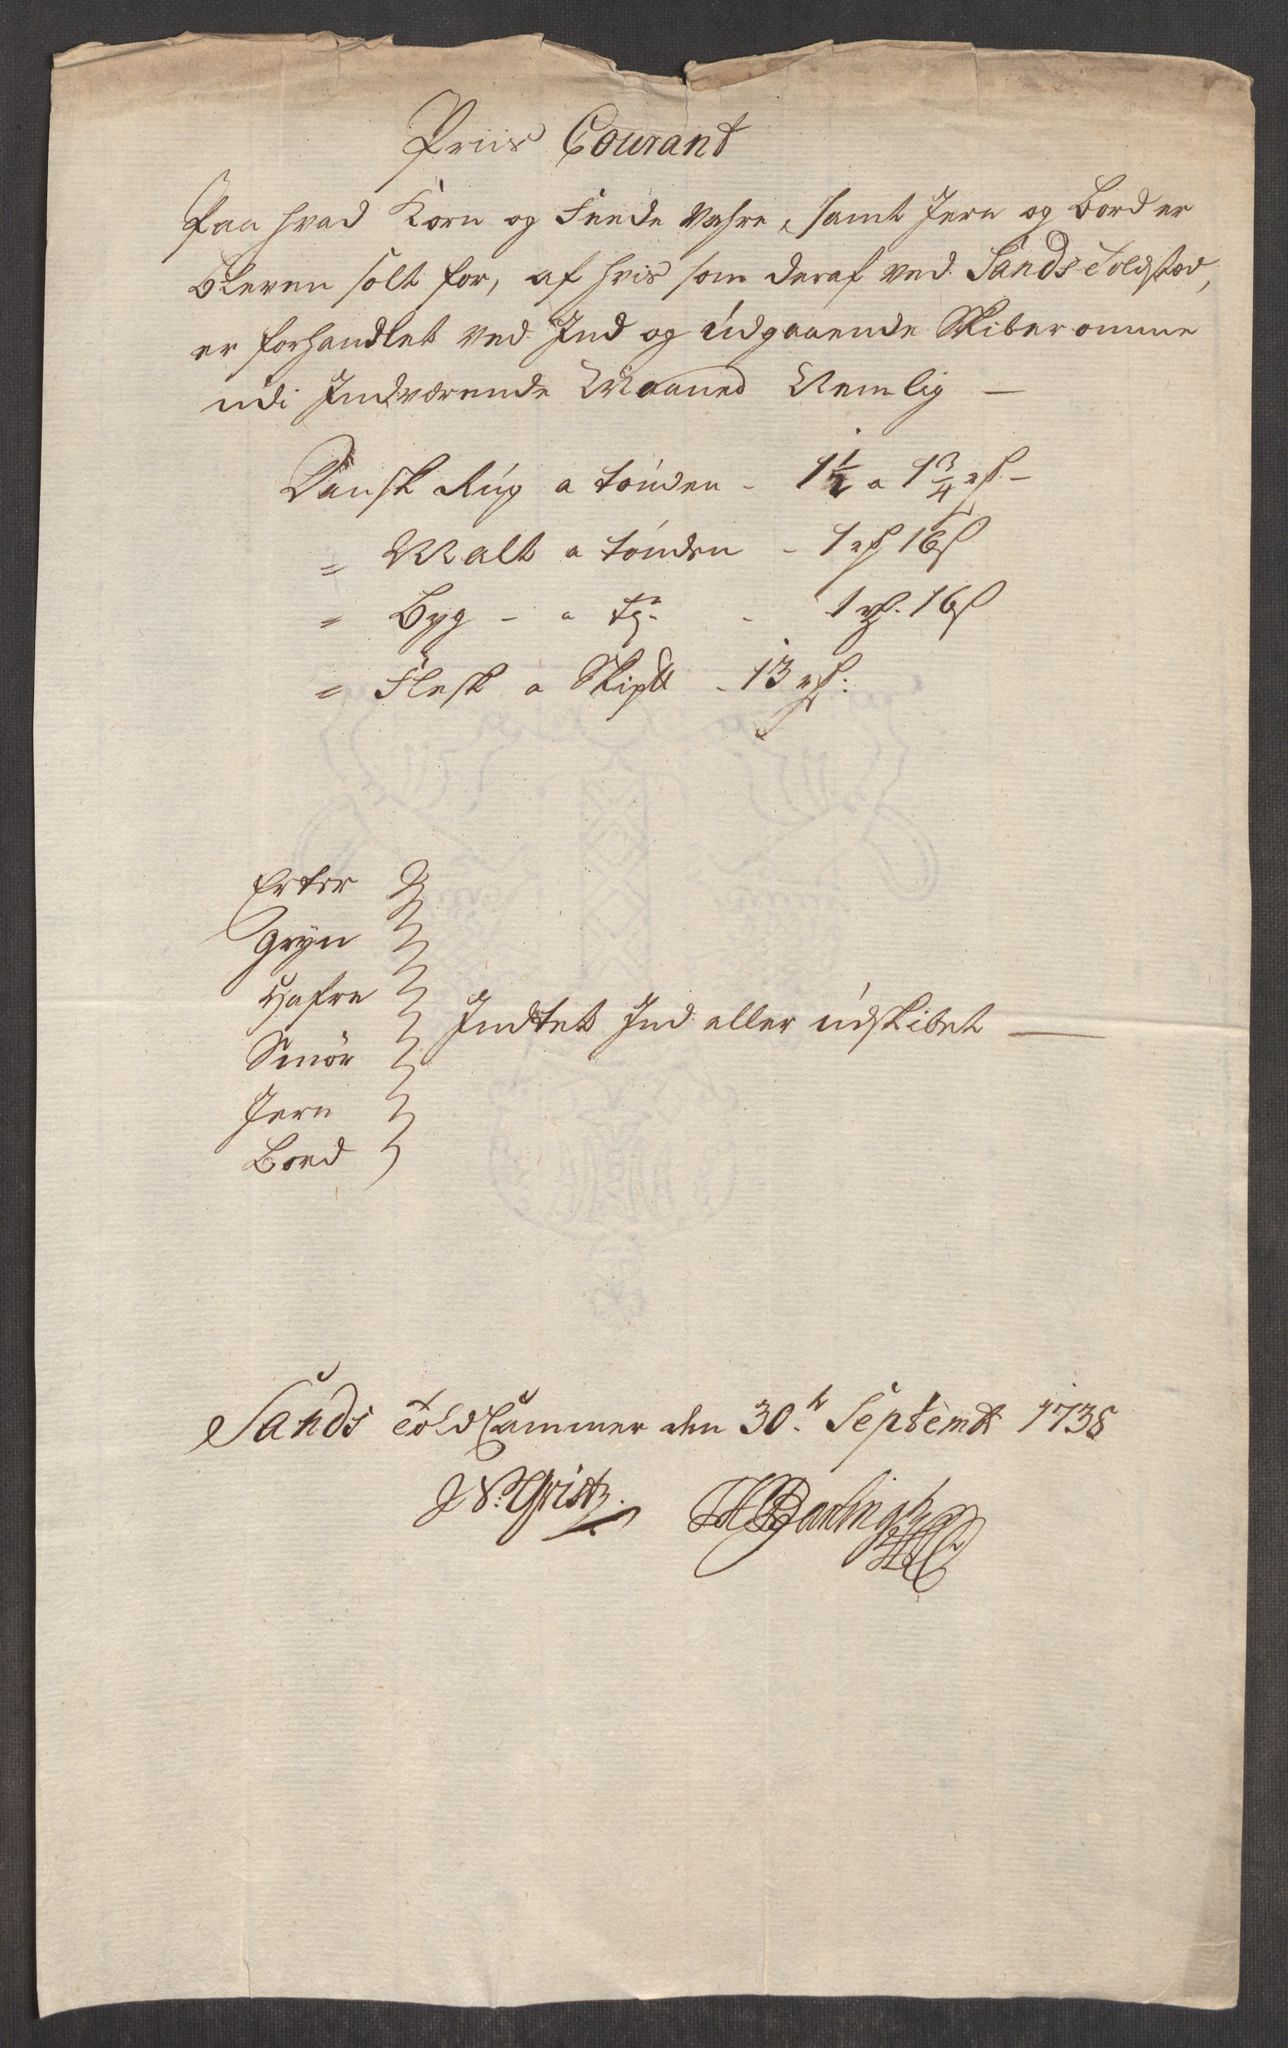 Priis Courant
Paa hvad Korn og Feede Vahre, samt Jern og Bord er
bleven solt for, af hvis som deraf ved Sands Toldstæd,
er forhandlet ved Ind og Udgaaende Skiber omme
udi Indværende Maaned Nemlig —
Dansk Rug a tønden - 1½ a 1¾ rd –
" Malt a tønden - 1 rd 16 s
" Byg - a Tde - 1 rd. 16 s
" Flesk a Skipd - 13 rd:
Erter
Gryn
Hafre
Smør
Jern
Bord
Indtet Ind eller udskibet —
Sands Told Cammer den 30.t Septembr 1738